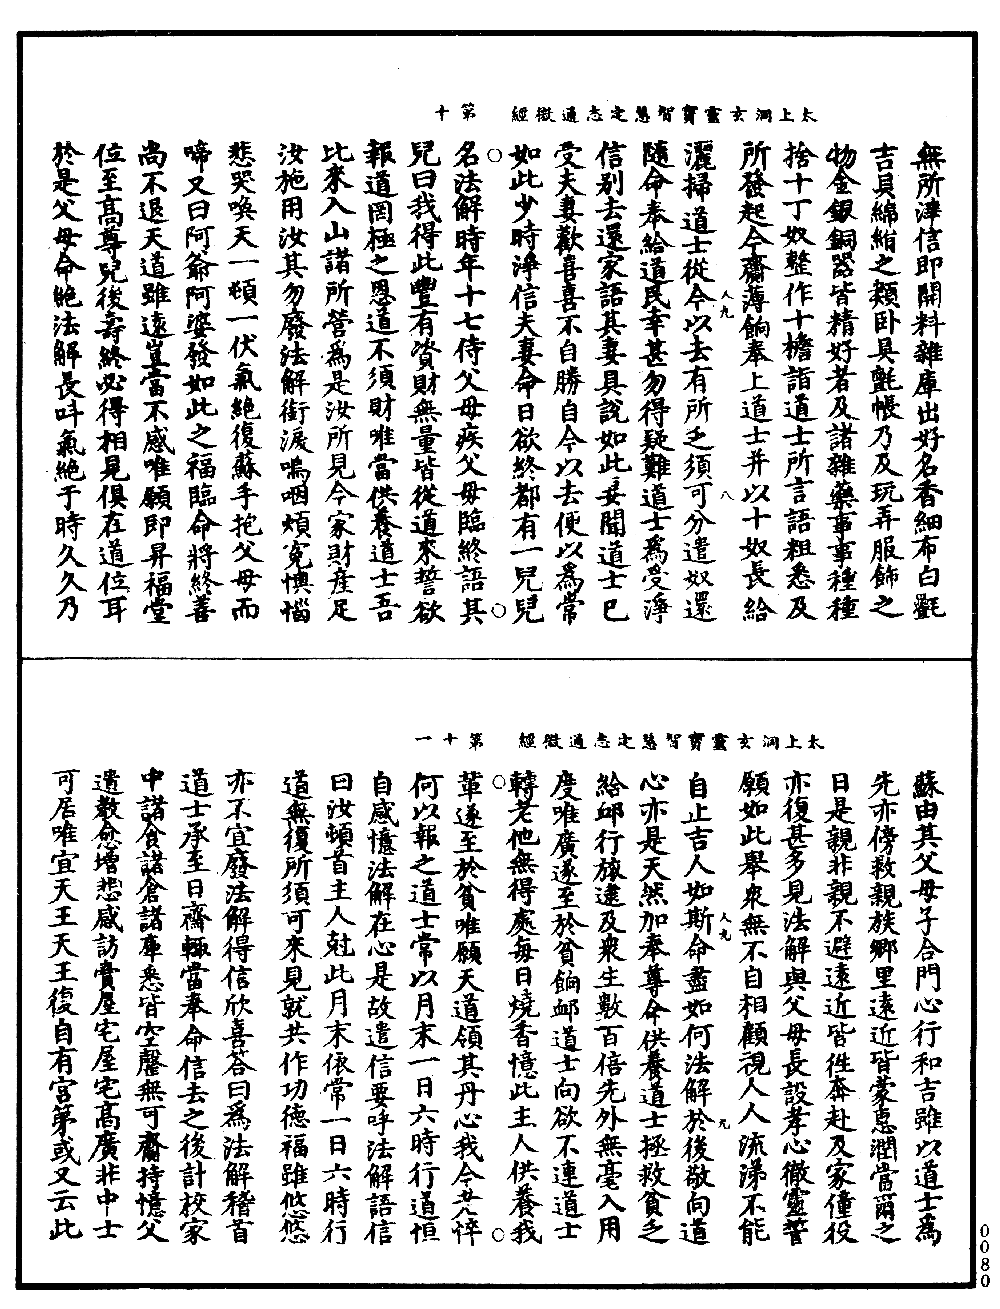 太上洞玄靈寶智慧定志通微經　第十
無所津信即開料雜庫出好名香細布白㲲
吉貝綿紬之類卧具氈帳乃及玩弄服飾之
物金銀銅器皆精好者及諸雜藥事事種種
捨十丁奴整作十檐詣道士所言語粗悉及
所發起今齋薄餉奉上道士并以十奴長給
灑掃道士從今以去有所乏須可分遣奴還
隨命奉給道民幸甚勿得疑難道士爲受淨
信别去還家語其妻具說如此妻聞道士已
受夫妻歡喜喜不自勝自今以去便以爲常
如此少時淨信夫妻命日欲終都有一兒兒
名法解時年十七侍父母疾父母臨終語其
兒曰我得此豐有貲財無量皆從道來誓欲
報道罔極之恩道不須財唯當供養道士吾
比來入山諸所營爲是汝所見今家財產足
汝施用汝其勿廢法解銜淚嗚咽煩寃懊惱
悲哭喚天一頓一伏氣絶復蘇手抱父母而
啼又曰阿爺阿婆發如此之福臨命將終善
尚不退天道雖遠豈當不感唯願即昇福堂
位至高尊兒後壽終必得相見俱在道位耳
於是父母命絶法解長叫氣絶于時久久乃
人九
八
太上洞玄靈寶智慧定志通微經　第十一
蘇由其父母子合門心行和吉雖以道士爲
先亦傍救親族鄉里遠近皆蒙惠潤當爾之
日是親非親不避遠近皆徃奔赴及家僮役
亦復甚多見法解與父母長設孝心徹靈誓
願如此舉衆無不自相顧視人人流涕不能
自止吉人如斯命盡如何法解於後敬向道
心亦是天然加奉尊命供養道士拯救貧乏
給卹行旅逮及衆生數百倍先外無毫入用
度唯廣遂至於貧餉卹道士向欲不連道士
轉老他無得處每日燒香憶此主人供養我
等遂至於貧唯願天道領其丹心我今老悴
何以報之道士常以月末一日六時行道恒
自感憶法解在心是故遣信要呼法解語信
曰汝頓首主人尅此月末依常一日六時行
道無復所須可來見就共作功德福雖悠悠
亦不宜廢法解得信欣喜荅曰爲法解稽首
道士承至日齋輒當奉命信去之後計校家
中諸食諸倉諸庫悉皆空罄無可齎持憶父
遺敕愈增悲感訪賣屋宅屋宅高廣非中士
可居唯宜天王天王復自有宮第或又云此
人九
九
0080